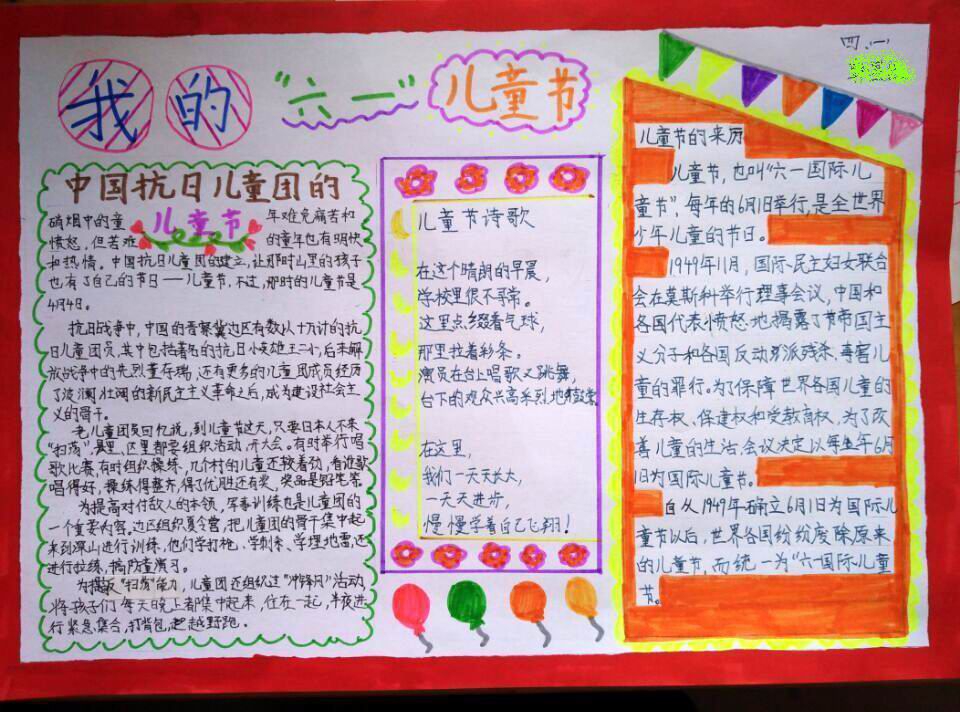 四.(一)
我的
“六一”
儿童节
中国抗日儿童团的
儿童节
硝烟中的童 年难免痛苦和
愤怒，但苦难 的童年也有明快
和热情。中国抗日儿童团的建立，让那时山里的孩子
也有了自己的节日——儿童节，不过，那时的儿童节是
4月4日。
抗日战争中，中国的晋察冀边区有数以十万计的抗
日儿童团员，其中包括著名的抗日小英雄王二小，后来解
放战争中的先烈董存瑞，还有更多的儿童团成员经历
了波澜壮阔的新民主主义革命之后，成为建设社会主
义的骨干。
老儿童团员回忆说，到儿童节这天，只要日本人不来
“扫荡”，县里、区里都要组织活动，开大会。有时举行唱
歌比赛，有时组织操练，几个村的儿童还较着劲，看谁歌
唱得好，操练得整齐，得了优胜还有奖，奖品是铅笔等。
为提高对付敌人的本领，军事训练也是儿童团的
一个重要内容。边区组织夏令营，把儿童团的骨干集中起
来到深山进行训练，他们学打枪、学刺杀、学埋地雷，还
进行拉练，搞防空演习。
为提反“扫荡”能力，儿童团还组织过“冲锋风”活动
将孩子们每天晚上都集中起来，住在一起，半夜进
行紧急集合，打背包，越野跑。
儿童节诗歌
在这个晴朗的早晨，
学校里很不寻常。
这里点缀着气球，
那里拉着彩条。
演员在台上唱歌又跳舞，
台下的观众兴高采烈地鼓掌
在这里，
我们一天天长大，
一天天进步，
慢慢学着自己飞翔！
儿童节的来历
儿童节，也叫“六一国际儿
童节”，每年的6月1日举行，是全世界
少年儿童的节日。
1949年11月，国际民主妇女联合
会在莫斯科举行理事会议，中国和
各国代表愤怒地揭露了帝国主
义分子和各国反动派残杀、毒害儿
童的罪行。为了保障世界各国儿童的
生存权、保健权和受教育权，为了改
善儿童的生活，会议决定以每年6月
1日为国际儿童节。
自从1949年确立6月1日为国际儿
童节以后，世界各国纷纷废除原来
的儿童节，而统一为“六一国际儿童
节。